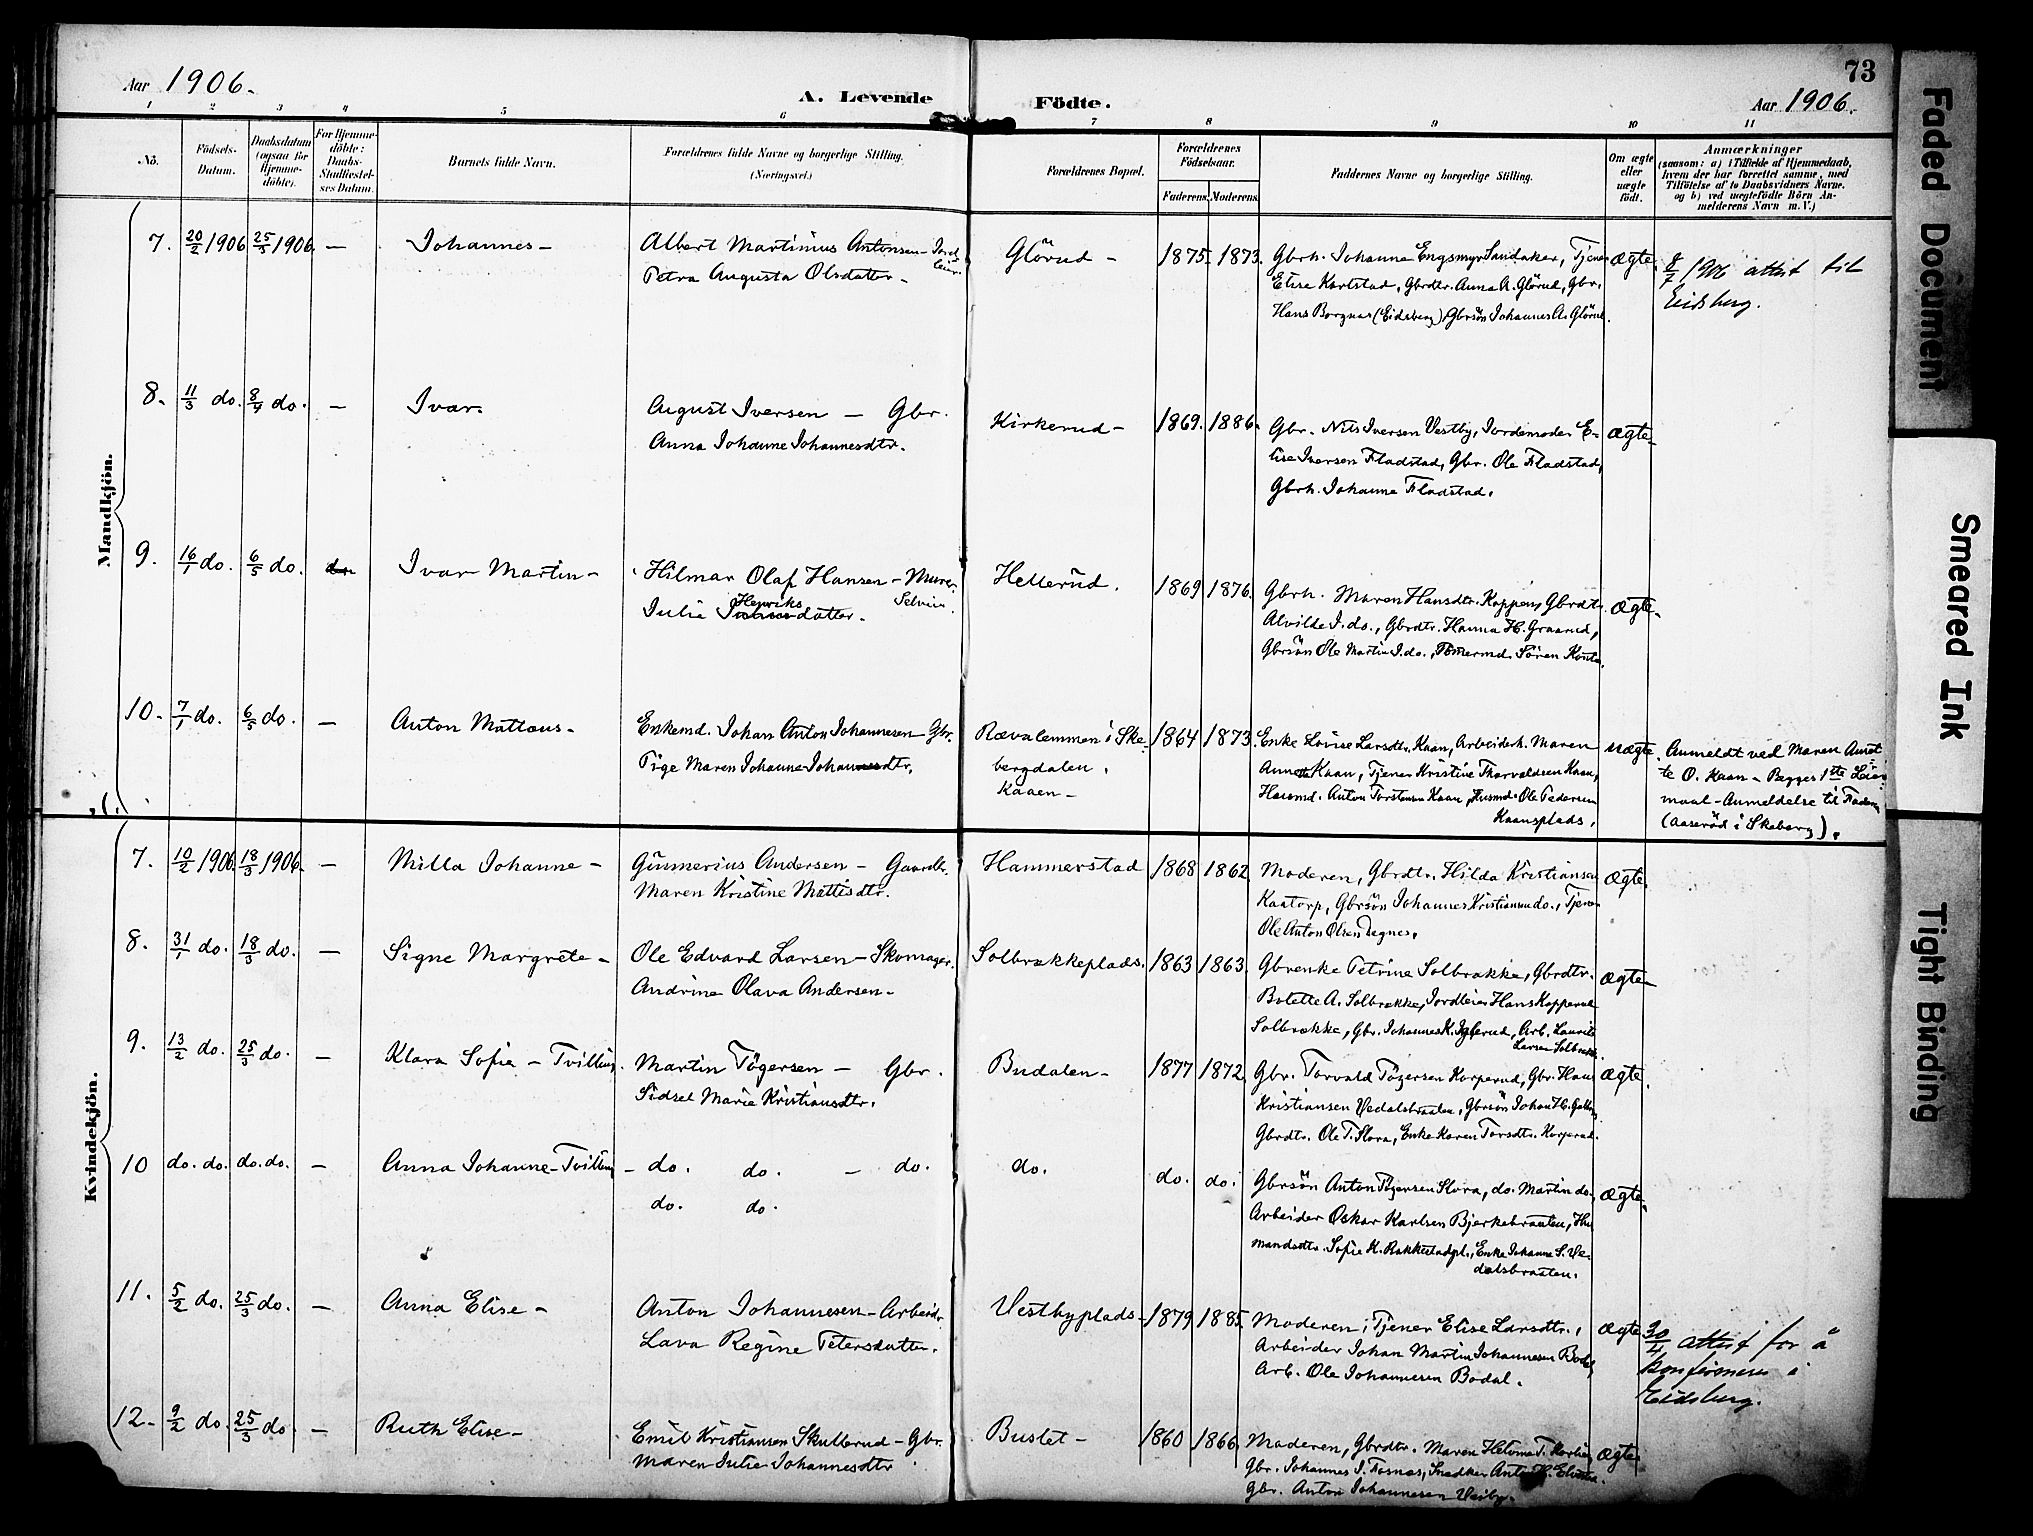 Aar 1906.
A. Levende Födte.
73
Aar 1906.
1 2 3 4 5 6 7 8 9 10 11
No.
Födsels-
Datum.
Daabsdatum
(ogsaa for
Hjemme-
döbte).
For Hjemme-
döbte:
Daabs-
Stadfæstel-
ses Datum.
Barnets fulde Navn.
Forældrenes fulde Navne og borgerlige Stilling.
(Næringsvei.)
Forældrenes Bopæl.
Forældrenes
Födselsaar.
Faderens. Moderens.
Faddernes Navne og borgerlige Stilling.
Om ægte
eller
uægte
födt.
Anmærkninger
(saasom: a) i Tilfælde af Hjemmedaab,
hvem der har forrettet samme, med
Tilföielse af to Daabsvidners Navne.
og b) ved uægtefödte Börn An-
melderens Navn m. V.)
Mandkjön.
7. 20/2 1906 25/3 1906. — Johannes —
Albert Martinius Antonsen — Jord-
leier.
Petra Augusta Olsdatter —
Glörud — 1875. 1873.
Gbrh. Johanne Engsmyr Sandaker, Tjener
Elise Karlstad, Gbrdtr. Anna A. Glörud, Gbr.
Hans Borgnas (Eidsberg), Gbrsön Johannes A. Glörud.
ægte.
8/7 1906 attest til
Eidsberg.
8. 11/3 do. 8/4 do. — Ivar.
August Iversen — Gbr.
Anna Johanne Johannesdtr.
Kirkerud — 1869. 1886.
Gbr. Nils Iversen Vestby, Jordemoder E-
lise Iversen Fladstad, Gbr. Ole Fladstad,
Gbrh. Johanne Fladstad.
ægte
9. 16/1 do. 6/5 do. do. Ivar Martin —
Hilmar Olaf Hansen — Murer
Selveier.
Julie Henriksdatter.
Hellerud. 1869 1876.
Gbrh. Maren Hansdtr. Koppen, Gbrdtr.
Alvilde I. do., Gbrdtr. Hanna H. Graarud,
Gbrsön Ole Martin I. do., Tömermd. Sören
ægte.
10. 7/1 do. 6/5 do. — Anton Mattæus —
Enkemd. Johan Anton Johannesen — Gbr.
Pige Maren Johanne Johannesdtr.
Rævalemmen i Ske-
bergdalen.
Kaaen —
1864 1873.
Enke Lovise Larsdtr. Kaan, Arbeiderh. Maren
Annette Kaan, Tjener Kristine Thorvaldsen Kaan,
Husmd. Anton Torstensen Kaan, Husmd. Ole Pedersen
Kaansplads.
uægte.
Anmeldt ved Maren Anet-
te O. Kaan — Begges 1ste Leier-
maal — Anmeldelse til Faderen
(Aaseröd i Skeberg).
Kvindekjön.
7. 10/2 1906. 18/3 1906. — Milla Johanne —
Gunnerius Andersen — Gaardbr.
Maren Kristine Mattisdtr.
Hammerstad 1868 1862
Moderen, Gbrdtr. Hilda Kristiansen
Kaatorp, Gbrsön Johannes Kristiansen do., Tjener
Ole Anton Olsen Degnes.
ægte.
8. 31/1 do. 18/3 do. — Signe Margrete —
Ole Edvard Larsen — Skomager.
Andrine Olava Andersen —
Solbrækkeplads. 1863 1863.
Gbrenke Petrine Solbrække, Gbrdtr.
Bolette A. Solbrække, Jordleier Hans Kopperud
Solbrække, Gbr. Johannes K. Iglerud, Arb. Laurits
Larsen Solbræk.
ægte —
9. 13/2 do. 25/3 do. — Klara Sofie — Tvilling.
Martin Tögersen — Gbr.
Sidsel Marie Kristiansdtr.
Budalen — 1877 1872.
Gbr. Torvald Tögersen Korperud, Gbr. Hans
Kristiansen Vedalsbraaten, Gbrsön Johan H.
Gbrdtr. Ole T. Slora, Enke Karen Torsdtr. Korperud.
ægte.
10 do. do. do. do. — Anna Johanne — Tvilling
— do. do. — do.
do. do.
do. do. do.
Gbrsön Anton Tögersen Slora, do. Martin do.,
Arbeider Oskar Karlsen Bjerkebraaten, Hus-
mandsdtr. Sofie K. Rakkestadpl., Enke Johanne S. Ve-
dalsbraaten.
ægte.
11. 5/2 do. 25/3 do. — Anna Elise —
Anton Johannesen — Arbeider
Lava Regine Petersdatter.
Vestbyplads — 1879 1885.
Moderen, Tjener Elise Larsdtr.,
Arbeider Johan Martin Johannesen Bodal,
Arb. Ole Johannesen Bodal.
ægte
30/4 attest for å
konfirmeres i
Eidsberg.
12. 9/2 do. 25/3 do. — Ruth Elise —
Emil Kristiansen Skullerud — Gbr.
Maren Julie Johannesdtr
Buslet — 1860 1866.
Moderen, Gbrdtr. Maren Helene T.
Gbr. Johannes I. Tosnas, Snedker Anton H.
Gbr. Anton Johannesen Vesby.
ægte
Faded Document
Smeared Ink
Tight Binding